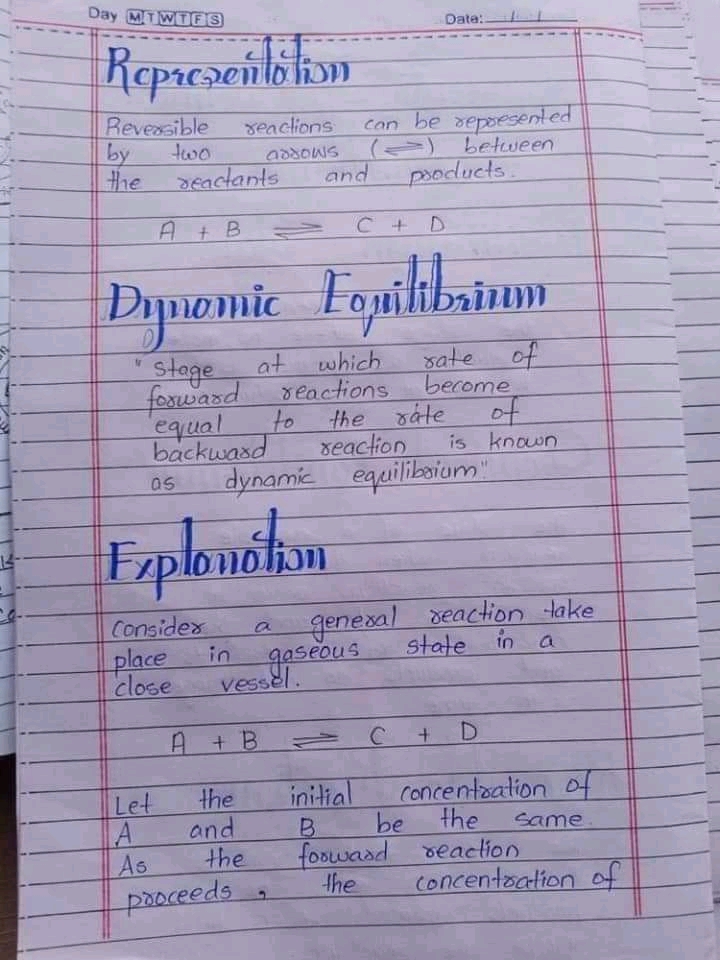 Day M T W T F S Date: / /
Representation
Reversible reactions can be represented
by two arrows (⇌) between
the reactants and products.
A + B ⇌ C + D
Dynamic Equilibrium
"Stage at which rate of
forward reactions become
equal to the rate of
backward reaction is known
as dynamic equilibrium"
Explanation
Consider a general reaction take
place in gaseous state in a
close vessel.
A + B ⇌ C + D
Let the initial concentration of
A and B be the same.
As the forward reaction
proceeds, the concentration of